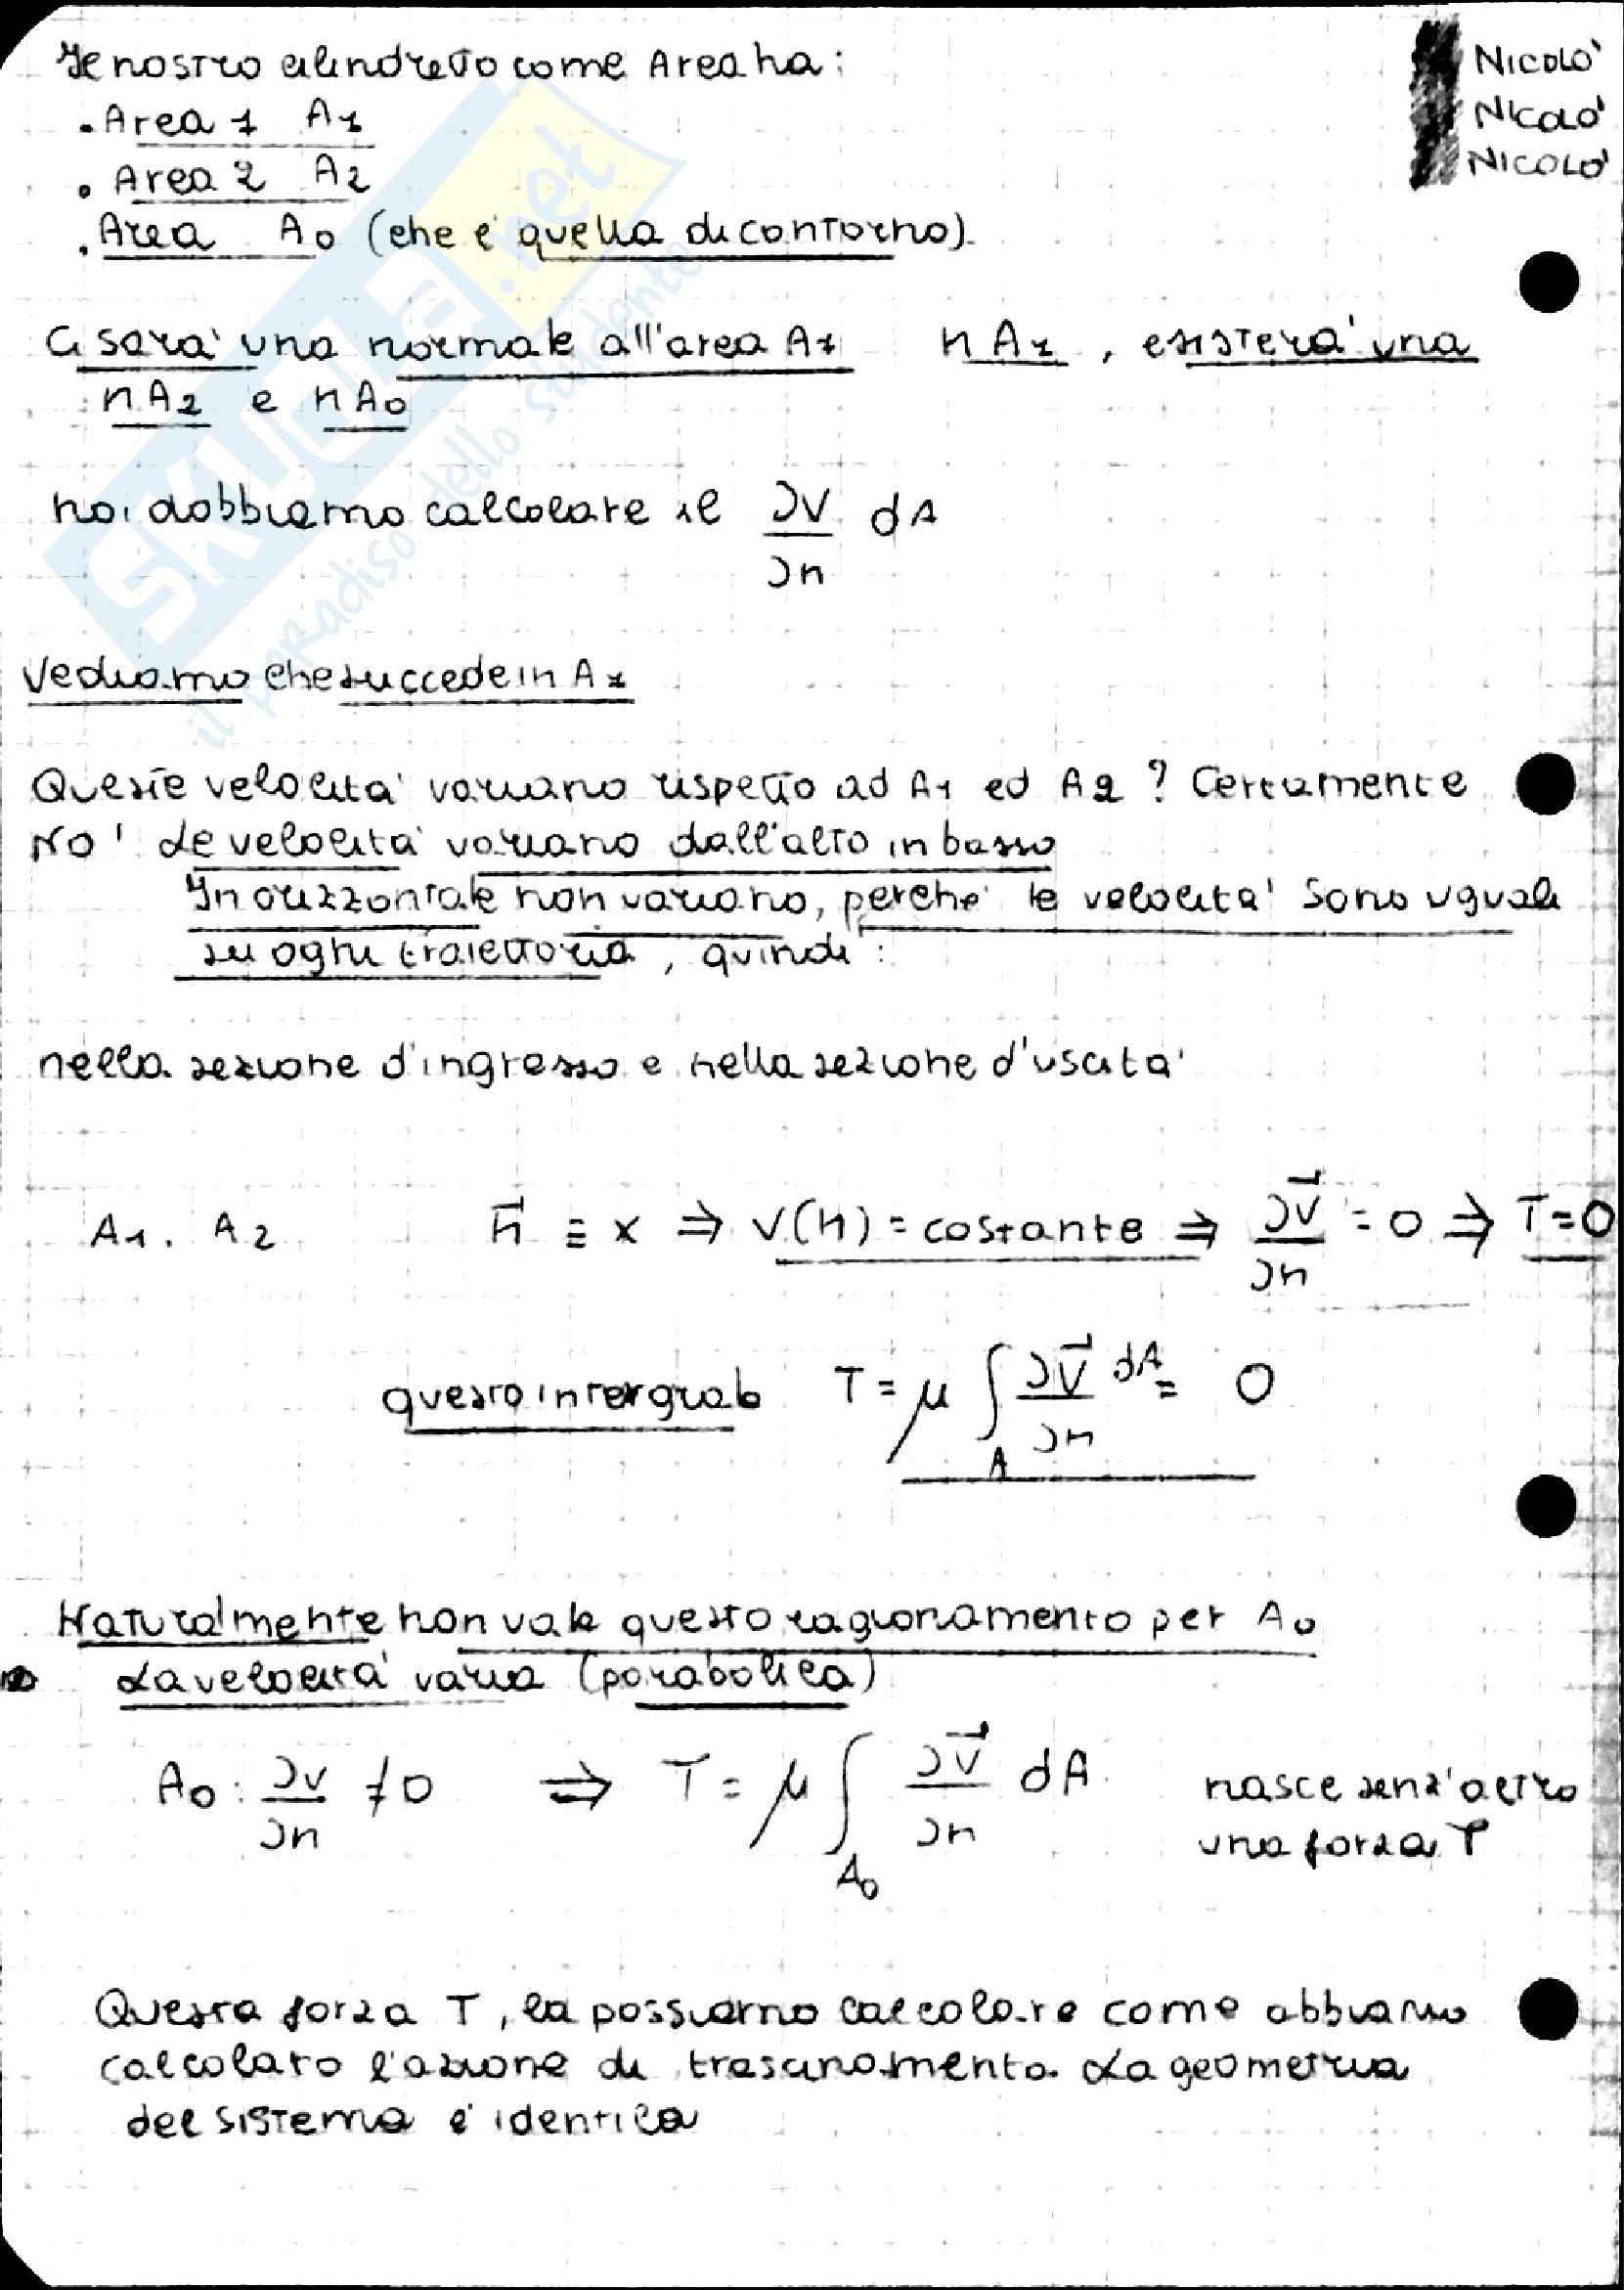 Il nostro cilindretto come Area ha:
NICOLO'
NICOLO'
NICOLO'
. Area 1 A1
. Area 2 A2
. Area A0 (che e' quella di contorno).
Ci sara' una normale all'area A1 nA1, esistera' una
nA2 e nA0
noi dobbiamo calcolare il ∂V/∂n dA
Vediamo che succede in A1
Queste velocita' variano rispetto ad A1 ed A2? Certamente
NO! Le velocita' variano dall'alto in basso
In orizzontale non variano, perche' le velocita' sono uguali
su ogni traiettoria, quindi:
nella sezione d'ingresso e nella sezione d'uscita'
A1. A2 n⃗ ≡ x ⇒ V(n) = costante ⇒ ∂V⃗/∂n = 0 ⇒ T=0
questo intergrale T = μ ∫A ∂V⃗/∂n dA = 0
Naturalmente non vale questo ragionamento per A0
La velocita' varia (parabolica)
A0: ∂v/∂n ≠ 0 ⇒ T = μ ∫A0 ∂V⃗/∂n dA
nasce senz'altro
una forza T
Questa forza T, la possiamo calcolare come abbiamo
calcolato l'azione di trascinamento. La geometria
del sistema e' identica
SKUOLA.net
il paradiso dello studente